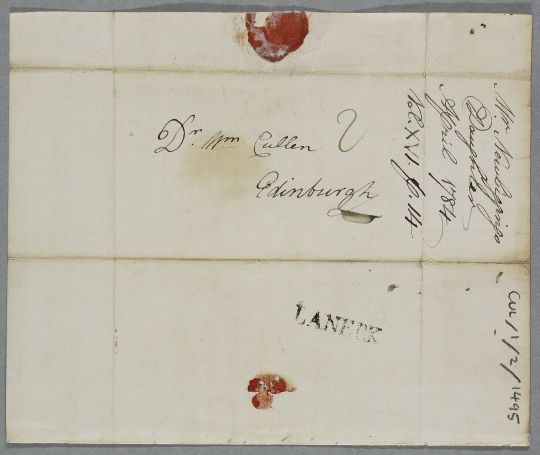 Dr. Wm Cullen
Edinburgh
2
Mr Newbigings
Daughter
April 1784
Vol. XVI. p. 114
LANERK
CUL/1/2/1495